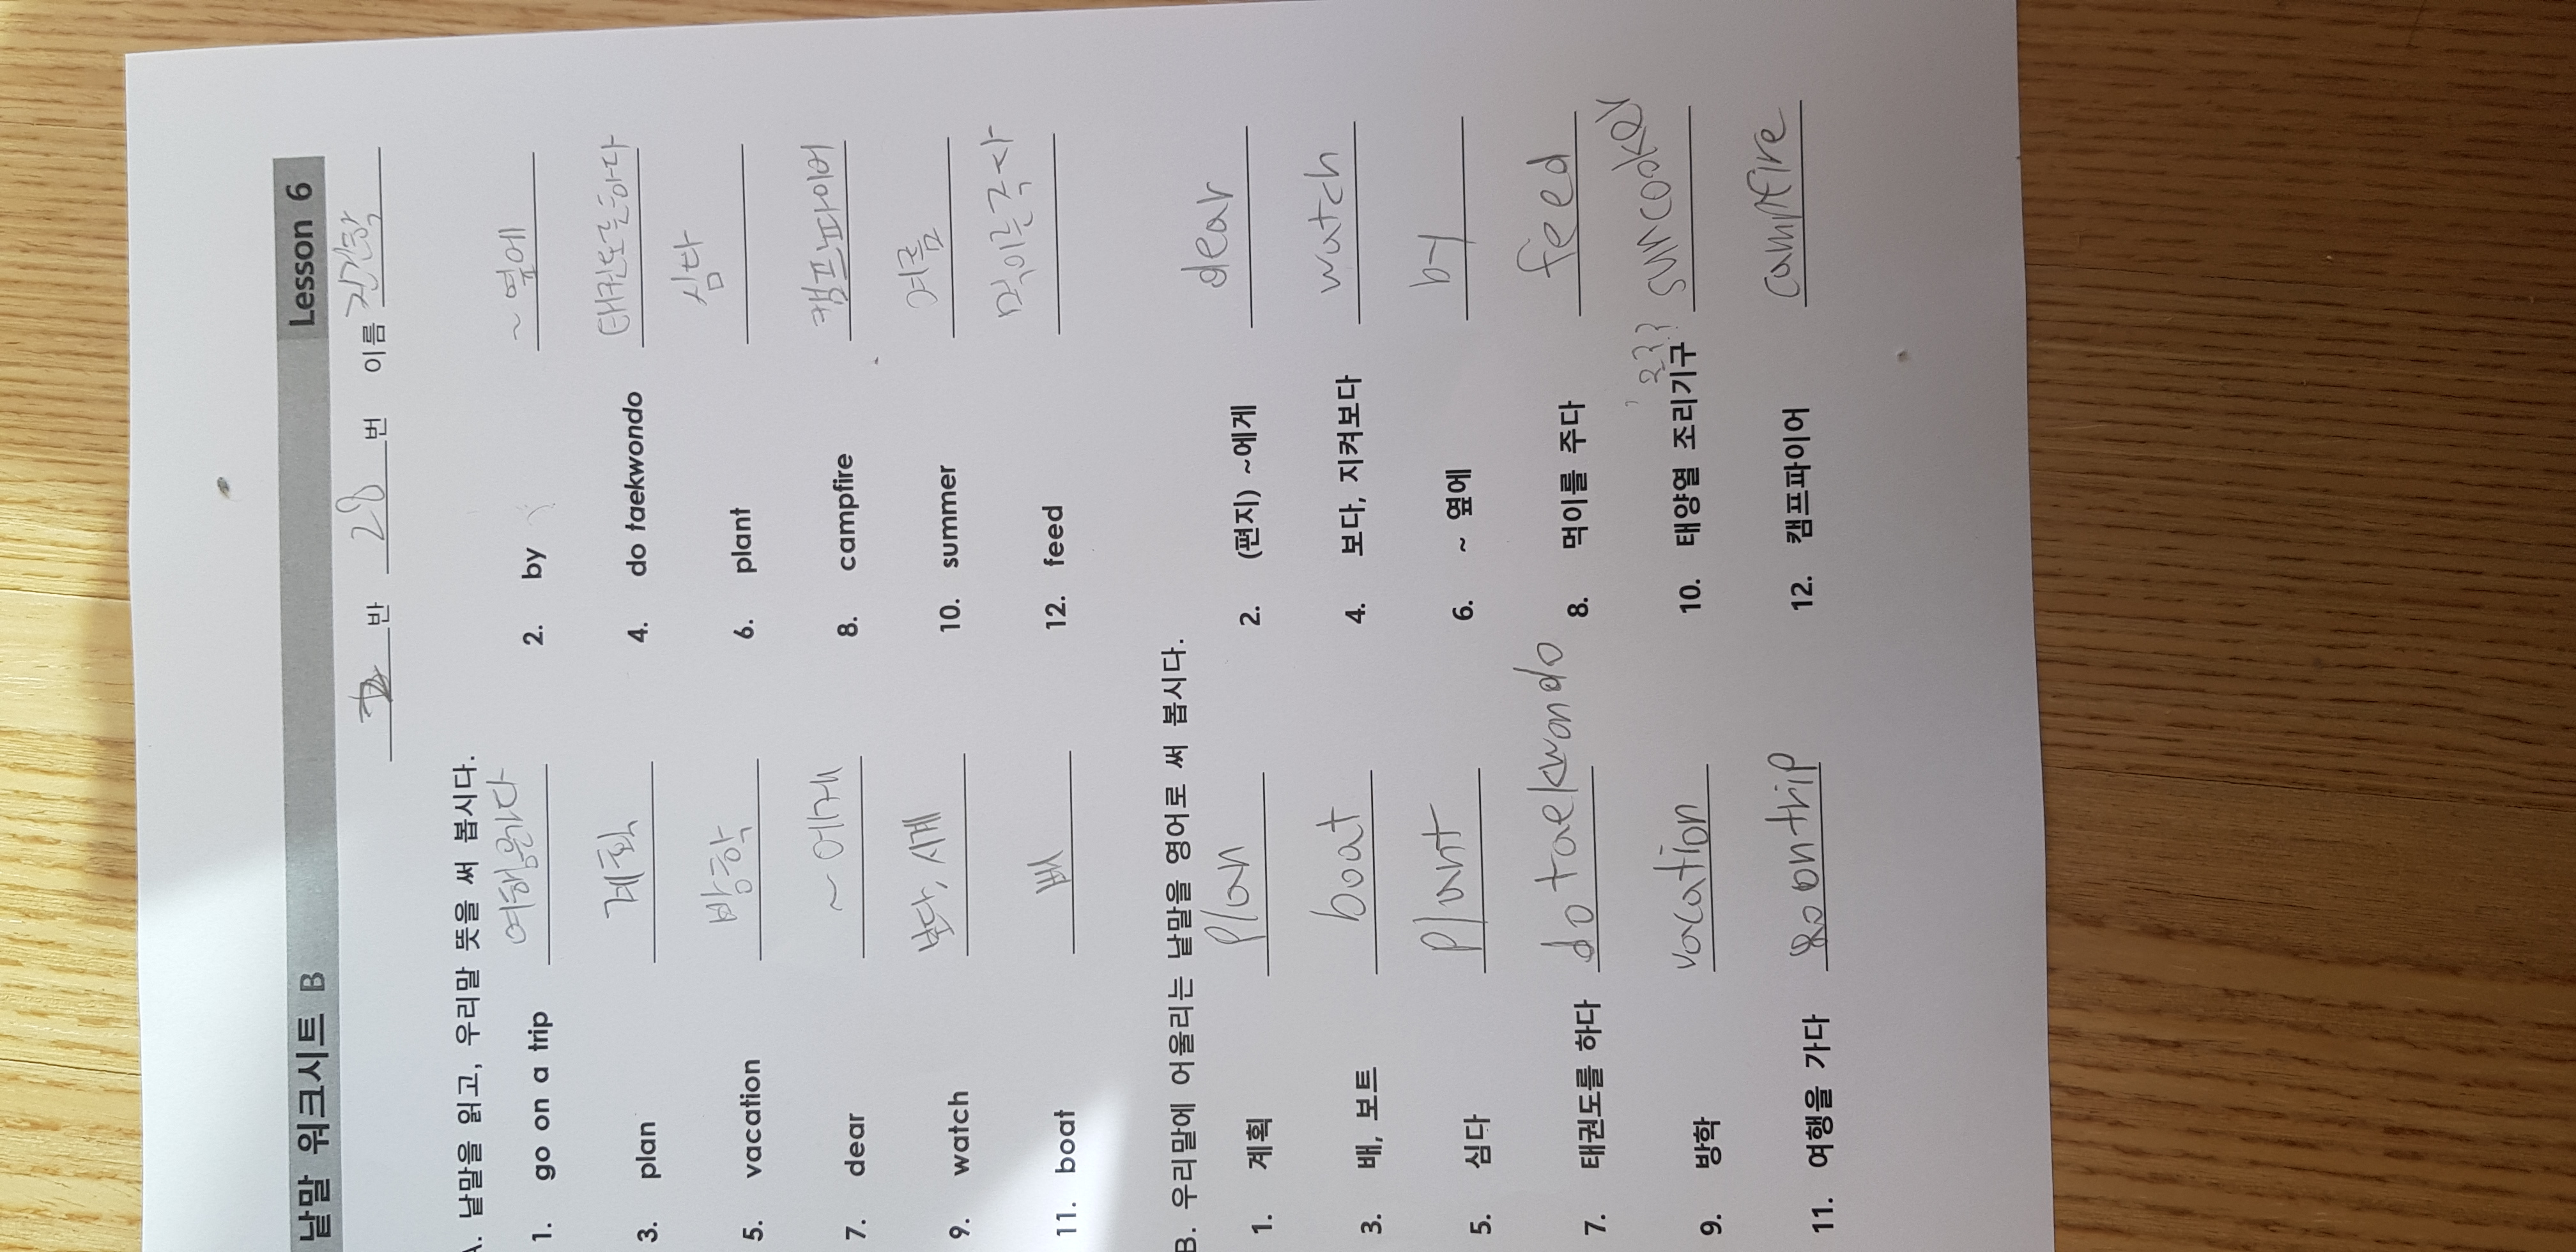 날말 워크시트 B Lesson 6
반 28 번 이름
A. 낱말을 읽고, 우리말 뜻을 써 봅시다.
1. go on a trip 여행을가다 2. by ~옆에
3. plan 계획 4. do taekwondo 태권도를하다
5. vacation 방학 6. plant 심다
7. dear ~에게 8. campfire 캠프파이어
9. watch 보다, 시계 10. summer 여름
11. boat 배 12. feed 먹이를주다
B. 우리말에 어울리는 낱말을 영어로 써 봅시다.
1. 계획 plan 2. (편지) ~에게 dear
3. 배, 보트 boat 4. 보다, 지켜보다 watch
5. 심다 plant 6. ~ 옆에 by
7. 태권도를 하다 do taekwondo 8. 먹이를 주다 feed
9. 방학 vacation 10. 태양열 조리기구 sun cooker
11. 여행을 가다 go on trip 12. 캠프파이어 campfire